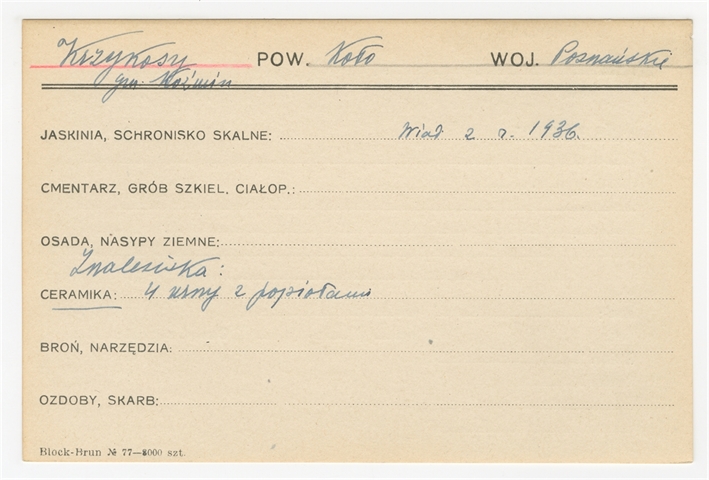 Krzykosy POW. Koło WOJ. Poznańskie
gm. Koźmin
JASKINIA, SCHRONISKO SKALNE: Wiad z r. 1936.
CMENTARZ, GRÓB SZKIEL. CIAŁOP.:
OSADA, NASYPY ZIEMNE:
Znaleziska:
CERAMIKA: 4 urny z popiołami
BROŃ, NARZĘDZIA:
OZDOBY, SKARB:
Block-Brun № 77—8000 szt.